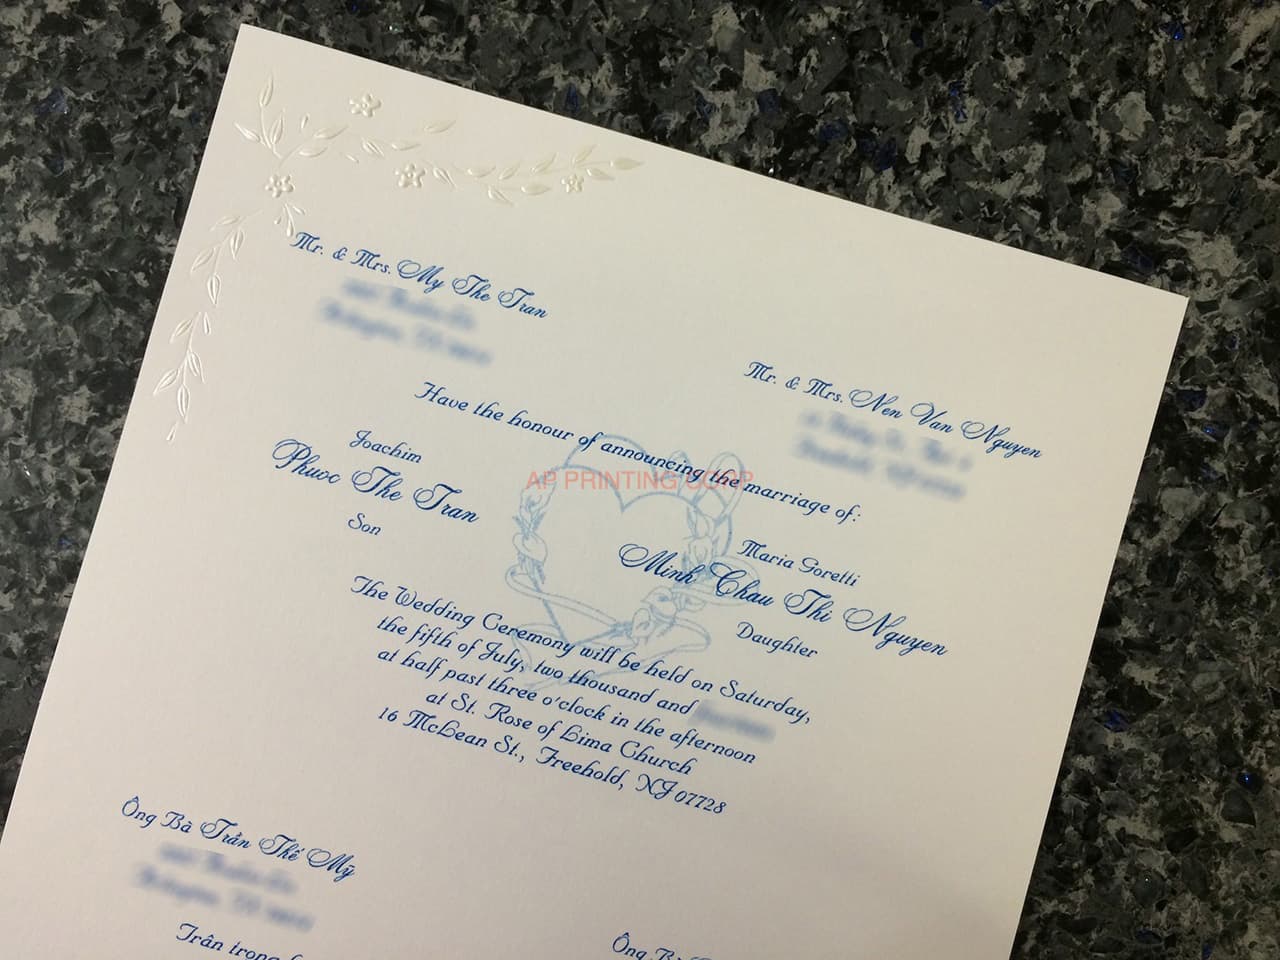 Mr. & Mrs. My The Tran
Mr. & Mrs. Nen Van Nguyen
Have the honour of announcing the marriage of:
AP PRINTING CORP
Joachim
Phuoc The Tran
Son
Maria Goretti
Minh Chau Thi Nguyen
Daughter
The Wedding Ceremony will be held on Saturday,
the fifth of July, two thousand and
at half past three o'clock in the afternoon
at St. Rose of Lima Church
16 McLean St., Freehold, NJ 07728
Ông Bà Trần Thế Mỹ
Trân trọng
Ông Bà